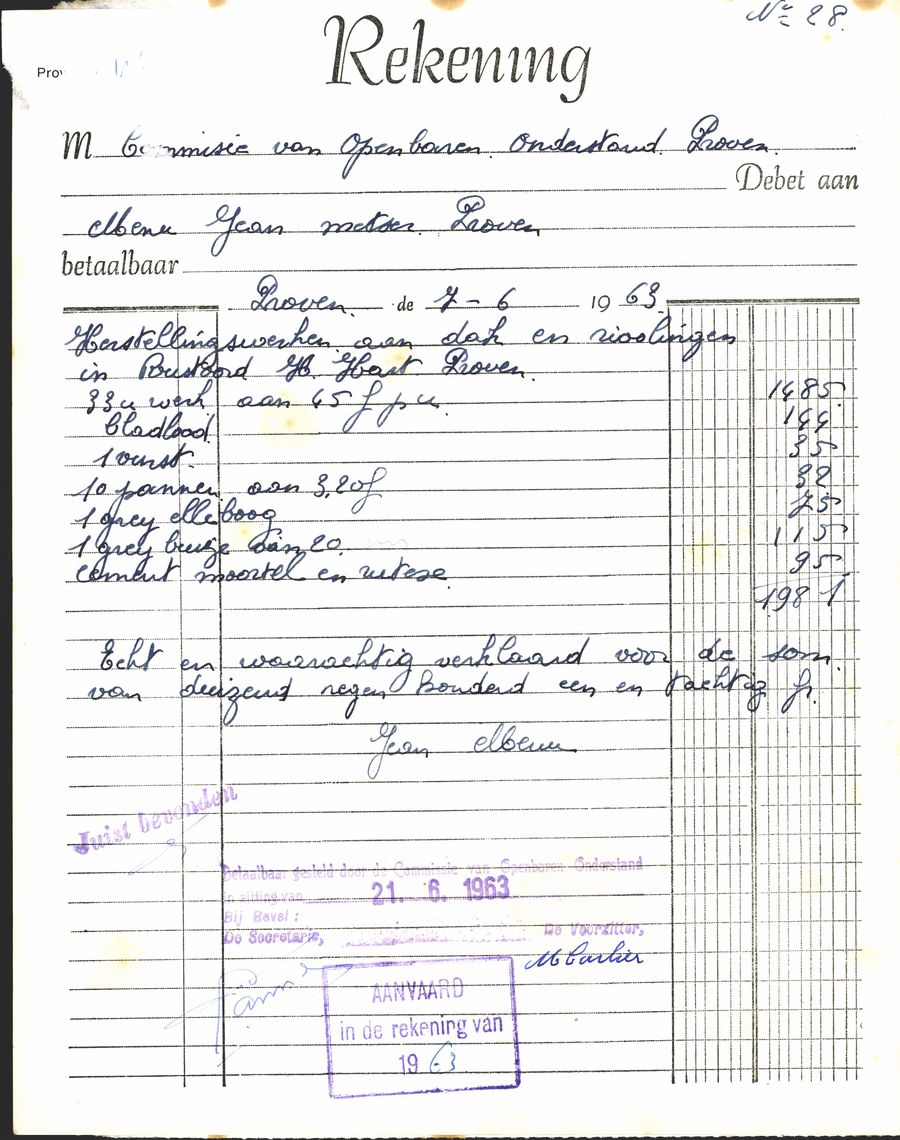 Nº 28.
Prov
Rekening
M Commisie van Openbaren Onderstand Proven.
Debet aan
Jean metser. Proven
betaalbaar
Proven. de 7-6 1963
Herstellingswerken aan dak en rioolingen
in Rustoord H. Hart Proven.
33 u werk aan 45 f p u. 1485
bladlood 144
1 vorst. 35
10 pannen aan 3,20 f 32
1 grey elleboog 75
1 grey buize van 20 115
cement moortel en 95
1981
Echt en waarachtig verklaard voor de som
van duizend negen honderd een en tachtig fr.
Jean
Juist bevonden
Betaalbaar gesteld door de Commissie van Openbaren Onderstand
in zitting van 21. 6. 1963
Bij Bevel:
De Secretaris, De Voorzitter,
AANVAARD
in de rekening van
1963